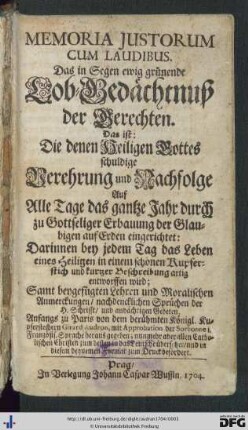 MEMORIA JUSTORUM
CUM LAUDIBUS.
Das in Segen ewig grünende
Lob-Gedächtnuß
der Gerechten.
Das ist:
Die denen Heiligen Gottes
schuldige
Verehrung und Nachfolge
Auf
Alle Tage das gantze Jahr durch
zu Gottseliger Erbauung der Glau-
bigen auf Erden eingerichtet:
Darinnen bey jedem Tag das Leben
eines Heiligen in einem schönen Kupfer-
stich und kurtzer Beschreibung artig
entworffen wird;
Samt beygefügten Lehren und Moralischen
Anmerckungen/ nachdencklichen Sprüchen der
H. Schrifft/ und andächtigen Gebeten,
Anfangs zu Paris von dem berühmten Königl. Ku-
pferstechern Girard Audran, mit Approbation der
Frantzös. Sprache heraus gegeben,
diesen zum Druck befördert.
Prag/
In Verlegung Johann Caspar Wussin. 1704.